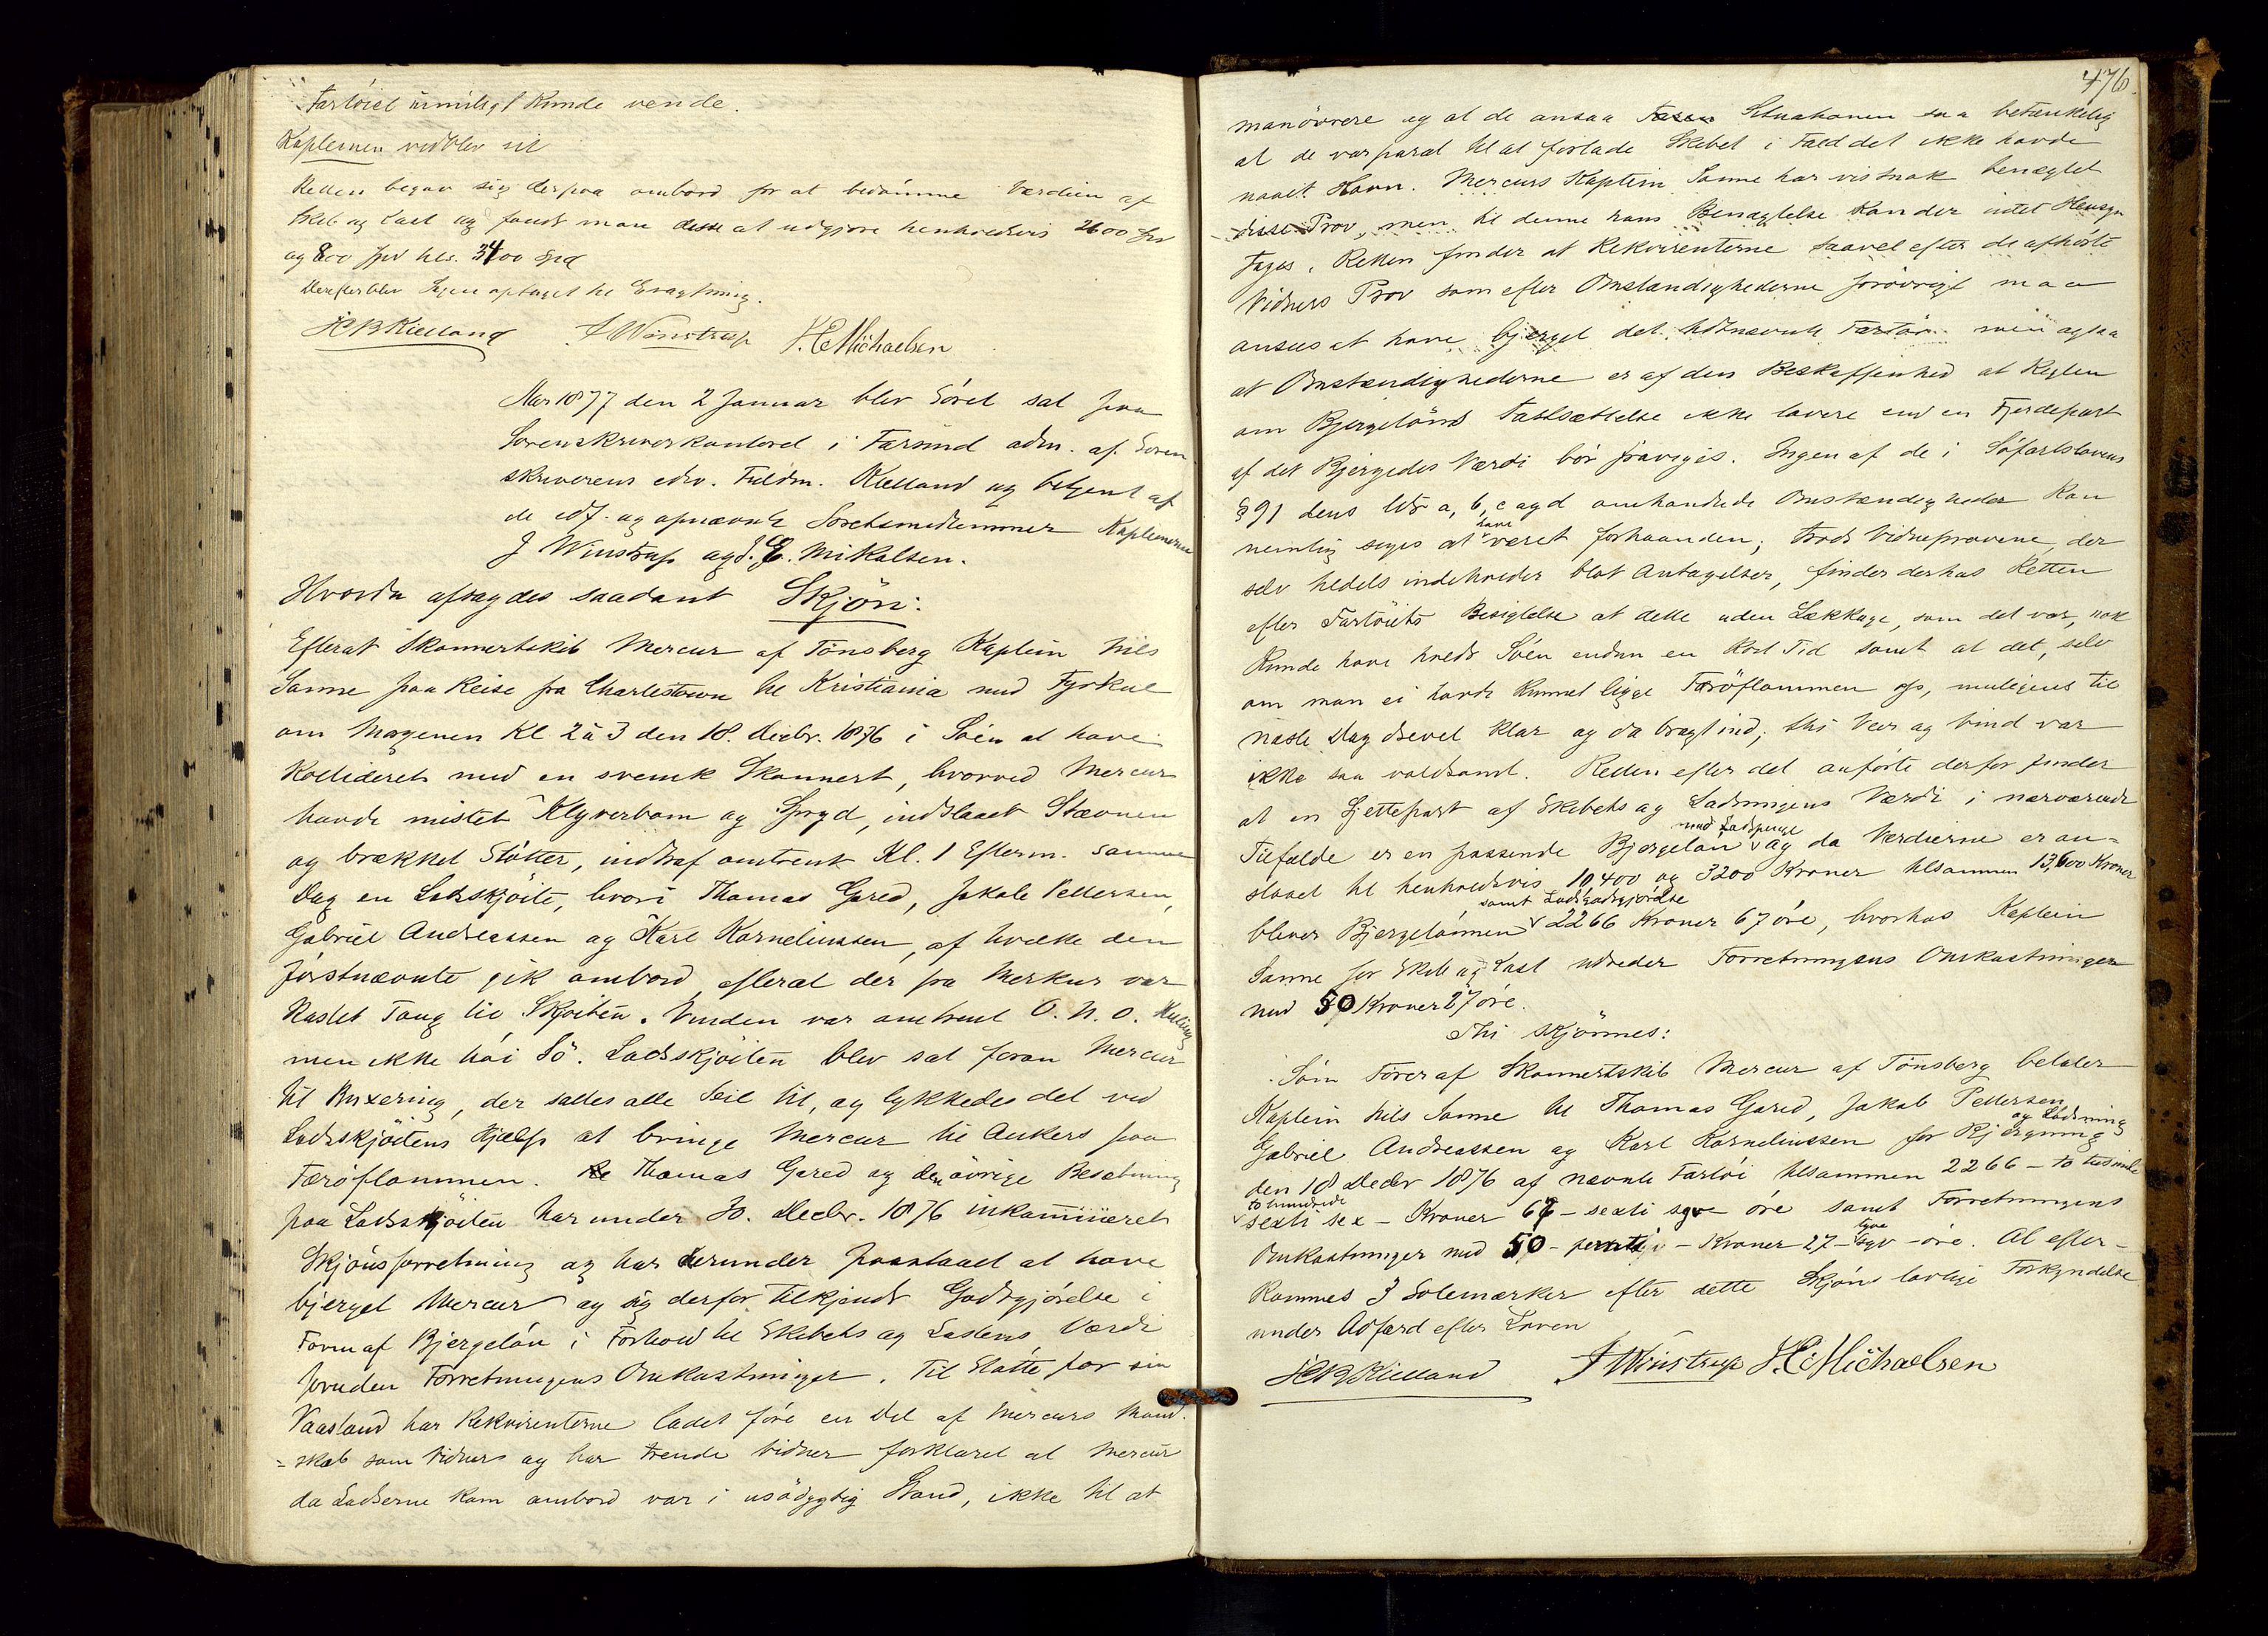 Fartöiet umuligt kunde vende.
Kapteinen vedblev sit
Retten begav sig derpaa ombord for at bedömme Værdien af
Skib og Last og fandt man disse at udgjøre henholdsvis 2600 Spd
og 800 Spd tils. 3400 Spd
Derefter blev Sagen optaget til Eragtning.
HCBKielland J Winstrup H.C. Michaelsen
Aar 1877 den 2 Januar blev Söret sat paa
Sorenskriverkontoret i Farsund adm. af Soren
skriverens edsv. Fuldm. Kielland og betjent af
de edf. og opnævnte Söretsmedlemmer Kapteinerne
J Winstrup og J. C. Mikalsen.
Hvorda afsagdes saadant Skjön:
Efterat Skonnertskib Mercur af Tönsberg Kaptein Nils
Sanne paa Reise fra Charlestown til Kristiania med Fyrkul
om Morgenen Kl 2 à 3 den 18. Decbr. 1876 i Söen at have
Kollideret med en svensk Skonnert, hvorved Mercur
havde mistet Klyverbom og Spryd, indslaaet Stævnen
og brækket Stötter, indtraf omtrent Kl. 1 Efterm. samme
Dag en Lodsskjöite, hvori Thomas Gared, Jakob Pettersen,
Gabriel Andreassen og Karl Korneliussen, af hvilke den
förstnævnte gik ombord efterat der fra Merkur var
Kastet Toug til Skjöiten. Vinden var omtrent O.N.O. Kuling
men ikke höi Sö. Lodsskjöiten blev sat foran Mercur
til Buxering, der sattes alle Seil til, og lykkedes det ved
Lodsskjöitens Hjælp at bringe Mercur til Ankers paa
Faröflommen. Thomas Gared og den övrige Besætning
paa Lodsskjöiten har under 30. Decbr. 1876 inkamineret
Skjönsforretning og har derunder paastaaet at have
bjerget Mercur og sig derfor tilkjendt Godtgjörelse i
Form af Bjergelön i Forhold til Skibets og Lastens Værdi
foruden Forretningens Omkostninger. Til Stötte for sin
Paastand har Rekvirenterne ladet före en Del af Mercurs Mand-
=skab som Vidner og har trende Vidner forklaret at Mercur
da Lodserne kom ombord var i usödygtig Stand, ikke til at
476.
manövrere og at de ansaa Situationen saa betænkelig
at de var parat til at forlade Skibet i Fald det ikke havde
naaet Havn. Mercurs Kaptein Sanne har vistnok benægtet
disse Prov, men til denne hans Benægtelse kan der intet Hensyn
tages. Retten finder at Rekvirenterne saavel efter de afhörte
Vidners Prov som efter Omstændighederne forövrigt maa
ansees at have bjerget det tidtnævnte Fartöi men ogsaa
at Omstændighederne er af den Beskaffenhed at Reglen
om Bjergelöns Fastsættelse ikke lavere end en Fjerdepart
af det Bjergedes Værdi bör fraviges. Ingen af de i Söfartslovens
§ 91 dens Litr a, b, c og d omhandlede Omstændigheder kan
nemlig siges at have været forhaanden; trods Vidneprovene, der
selv tildels indeholder blot Antagelser, finder derhos Retten
efter Fartöiets Besigtelse at dette uden Lækkage, som det var, nok
kunde have holdt Söen endnu en kort Tid samt at det, selv
om man ei havde kunnet ligge Faröflommen op, muligens til
næste Dag drevet klar og da bragt ind; thi Veir og Vind var
ikke saa voldsomt. Retten efter det anförte derfor finder
at en Sjettepart af Skibets og Ladningens Værdi i nærværende
Tilfælde er en passende Bjergelön med Lodspenge og da Værdierne er an-
slaaet til henholdsvis 10400 og 3200 Kroner tilsammen 13,600 Kroner
bliver Bjergelönnen samt Lodsgodtgjördse 2266 Kroner 67 öre, hvorhos Kaptein
Sanne for Skib og Last udreder Forretningens Omkostninger
med 50 Kroner 27 öre.
Thi skjönnes:
Som Förer af Skonnertskib Mercur af Tönsberg betaler
Kaptein Nils Sanne til Thomas Gared, Jakob Pettersen
Gabriel Andreassen og Karl Korneliussen for Bjergning og Lodsning
den 18 Decbr 1876 af nævnte Fartöi tilsammen 2266 - to tusinde
to hundrede sexti sex - Kroner 67 - sexti syv öre samt Forretningens
Omkostninger med 50 - femti - Kroner 27 - tyve syv - öre. At efter-
kommes 3 Solemærker efter dette Skjöns lovlige Forkyndelse
under Adfærd efter Loven
HCBKielland J Winstrup H.C. Michaelsen